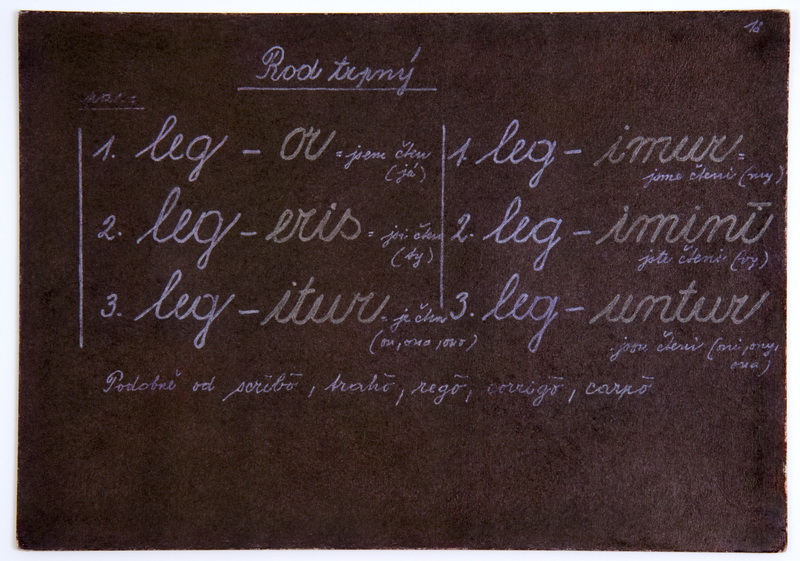 Rod trpný
1. leg – or = jsem čten
(já)
2. leg – eris = jsi čten
(ty)
3. leg – itur = je čten
(on, ona, ono)
1. leg – imur =
jsme čteni (my)
2. leg – iminī
jste čteni (vy)
3. leg – untur
jsou čteni (oni, ony,
ona)
Podobně od scrībō, trahō, regō, corrigō, carpō